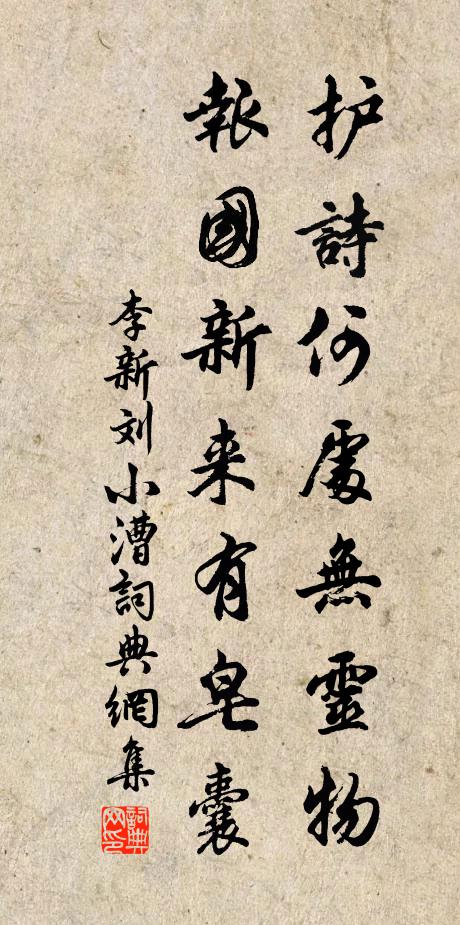 护詩何處無靈物
報國新来有皂囊
李新刘小漕詞典網集
詞典网印